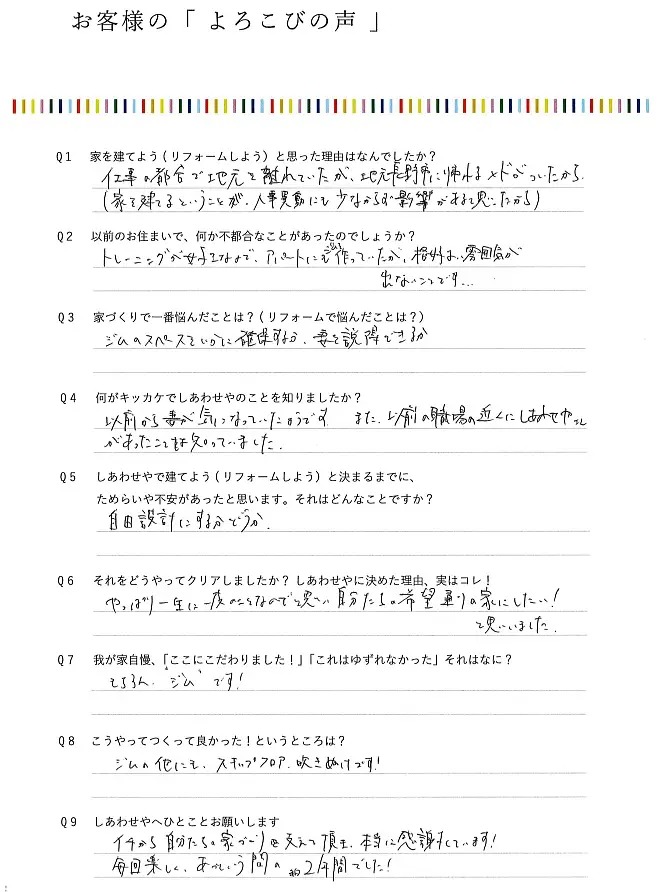 お客様の「 よろこびの声 」
Q1 家を建てよう(リフォームしよう)と思った理由はなんでしたか?
仕事の都合で地元を離れていたが、地元長野市に帰れるメドがついたから.
(家を建てるということが、人事異動にも少なからず影響があると思ったから)
Q2 以前のお住まいで、何か不都合なことがあったのでしょうか?
トレーニングが好きなので、アパートにも ジム 作っていたが、雰囲気が
出ないことです...
Q3 家づくりで一番悩んだことは?(リフォームで悩んだことは?)
ジムのスペースをいかに確保するか、妻を説得できるか
Q4 何がキッカケでしあわせやのことを知りましたか?
以前から妻が気になっていたようです また、以前の職場の近くにしあわせやさん
があったことも知っていました.
Q5 しあわせやで建てよう(リフォームしよう)と決まるまでに、
ためらいや不安があったと思います。それはどんなことですか?
自由設計にするかどうか.
Q6 それをどうやってクリアしましたか? しあわせやに決めた理由、実はコレ!
やっぱり一生に一度のことなのでと思い 自分たちの希望通りの家にしたい!
と思いました.
Q7 我が家自慢、「ここにこだわりました!」「これはゆずれなかった」それはなに?
もちろん、"ジム"です!
Q8 こうやってつくって良かった!というところは?
ジムの他にも、スキップフロア、吹きぬけです!
Q9 しあわせやへひとことお願いします
イチから自分たちの家づくりを支えて頂き、本当に感謝しています!
毎回楽しく、あっという間の 約2年間でした!